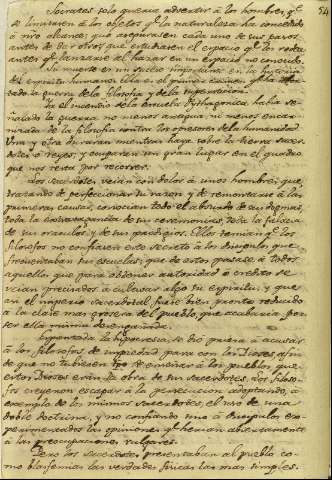 54
Sócrates solo queria advertir á los hombres, qᵉ
se limitasen á los objetos qᵉ la naturaleza ha concedido
á nro alcance; qᵉ asegurasen cada uno de sus pasos
antes de dar otros qᵉ estudiasen el espacio qᵉ los rodea
antes qᵉ lanzarse al hazar en un espacio no conocido.
Su muerte es un suceso importante en la historia
del espíritu humano: Ella es el primer crimen qᵉ ha
la guerra de la filosofia y de la supersticion.
Ya el incendio de la escuela Pythagorica había se-
ñalado la guerra, no menos antigua, ni menos encar-
nizada de la filosofia contra los opresores de la humanidad
Una y otra duraran mientras haya sobre la tierra sacer-
dotes ó reyes; y ocuparan un gran lugar en el quadro
que nos resta por recorrer.
Los sacerdotes veian con dolor á unos hombres, que
tratando de perfeccionar su razon, y de remontarse á las
primeras causas, conocian todo el absurdo de sus dogmas,
toda la extravagancia de sus ceremonias, toda la falacia
de sus oraculos y de sus prodigios. Ellos temian qᵉ los
filosofos no confiasen este secreto á los discipulos, que
frecuentaban sus escuelas; que de estos pasase á todos
aquellos que para obtener autoridad ó credito se
veian precisados á cultivar algo su espiritu; y que
asi el imperio sacerdotal fuese bien pronto reducido
á la clase mas grosera del pueblo, que acabaria por
ser ella misma desengañada.
la hipocresia, se dió priesa á acusar
á los filosofos de impiedad para con los Dioses, afin
de que no tubiesen tpo de enseñar á los pueblos que
estos Dioses eran la obra de sus sacerdotes. Los filoso-
fos creyeron escapar á la persecucion adoptando, á
exemplo de los mismos sacerdotes, el uso de una
doble doctrina, y no confiando sino á discipulos ex-
perimentados las opiniones qᵉ herian abiertamente
á las preocupaciones vulgares.
Pero los sacerdotes presentaban al pueblo co-
mo blasfemias las verdades fisicas las mas simples.